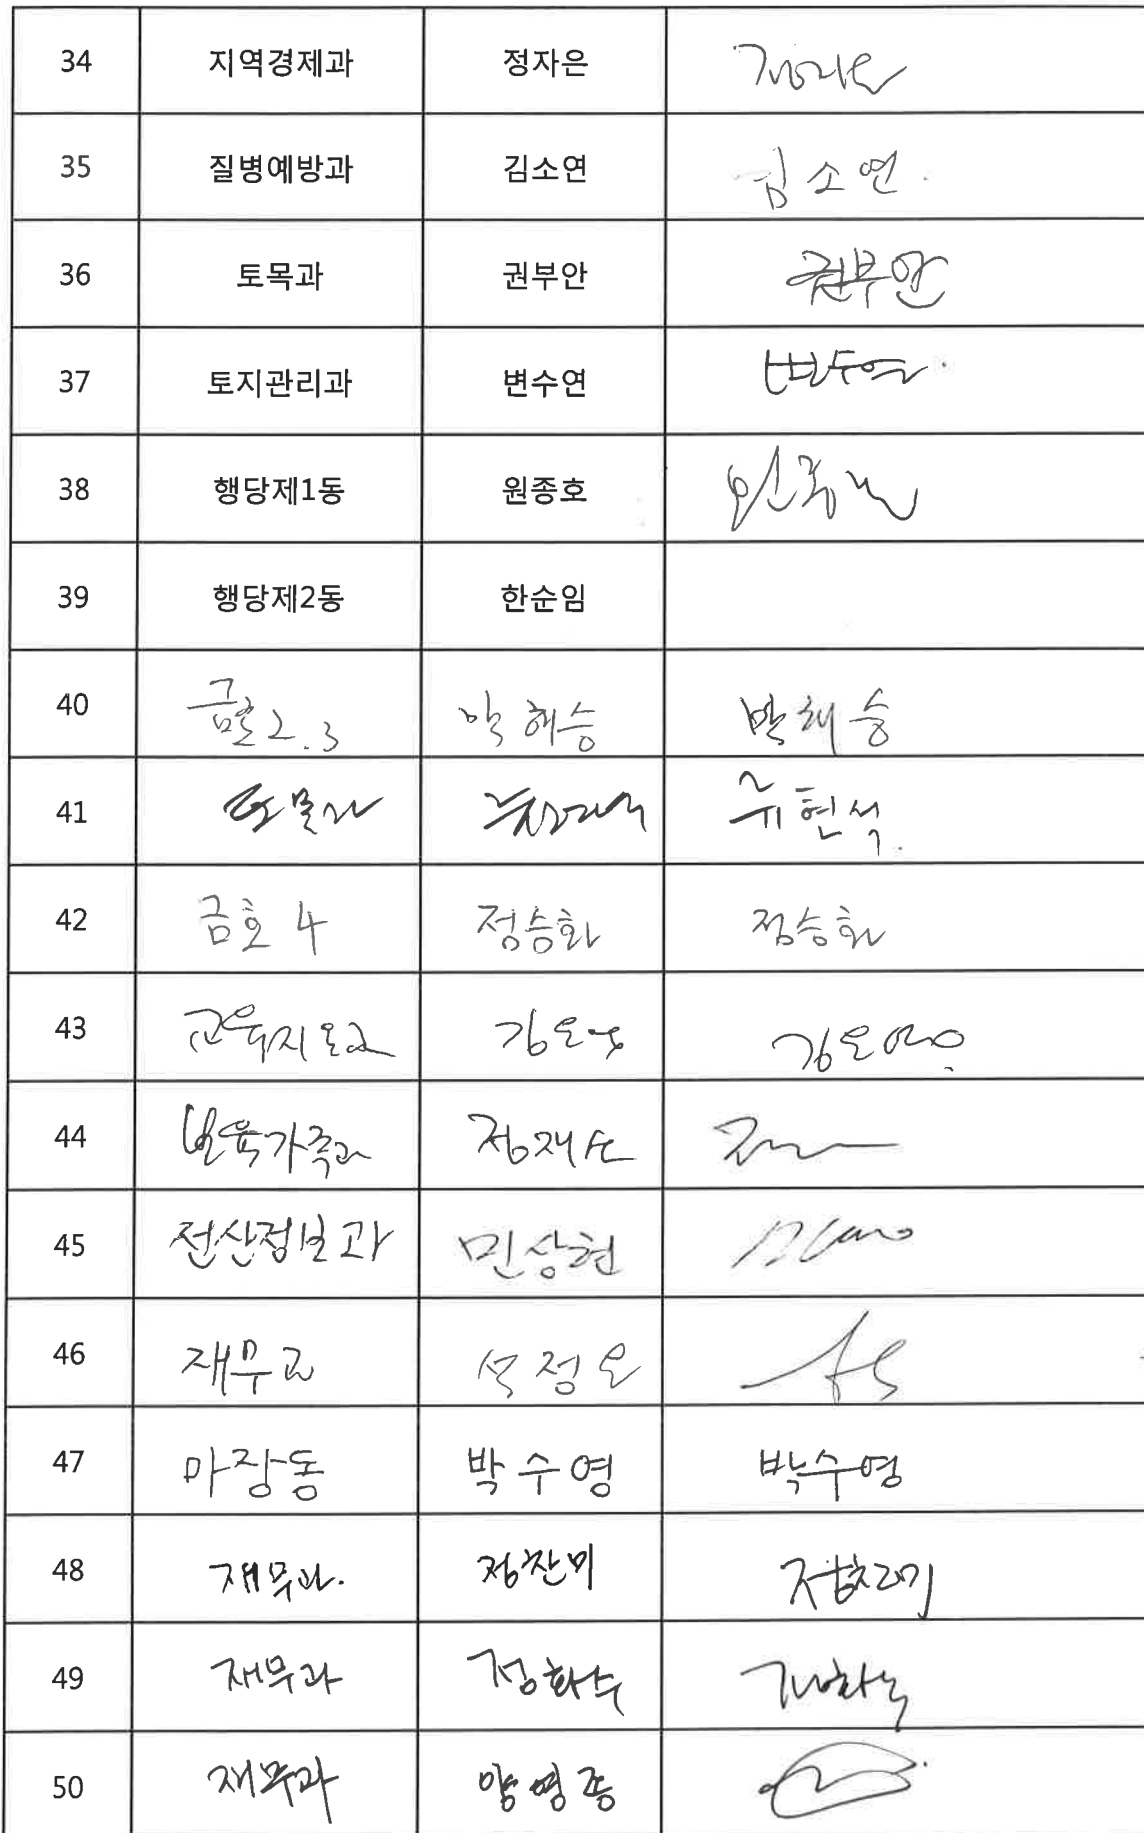 34 지역경제과 정자은
35 질병예방과 김소연 김소연.
36 토목과 권부안 권부안
37 토지관리과 변수연 변수연
38 행당제1동 원종호 원종호
39 행당제2동 한순임
40 금호2.3 박해승 박해승
41 류현석.
42 금호4 정승화 정승화
43 교육지원과 김은영 김은영
44 보육가족과
45 전산정보과 민상현
46 재무과 석정은
47 마장동 박수영 박수영
48 재무과. 정찬미 정찬미
49 재무과 정화수 정화수
50 재무과 양영종